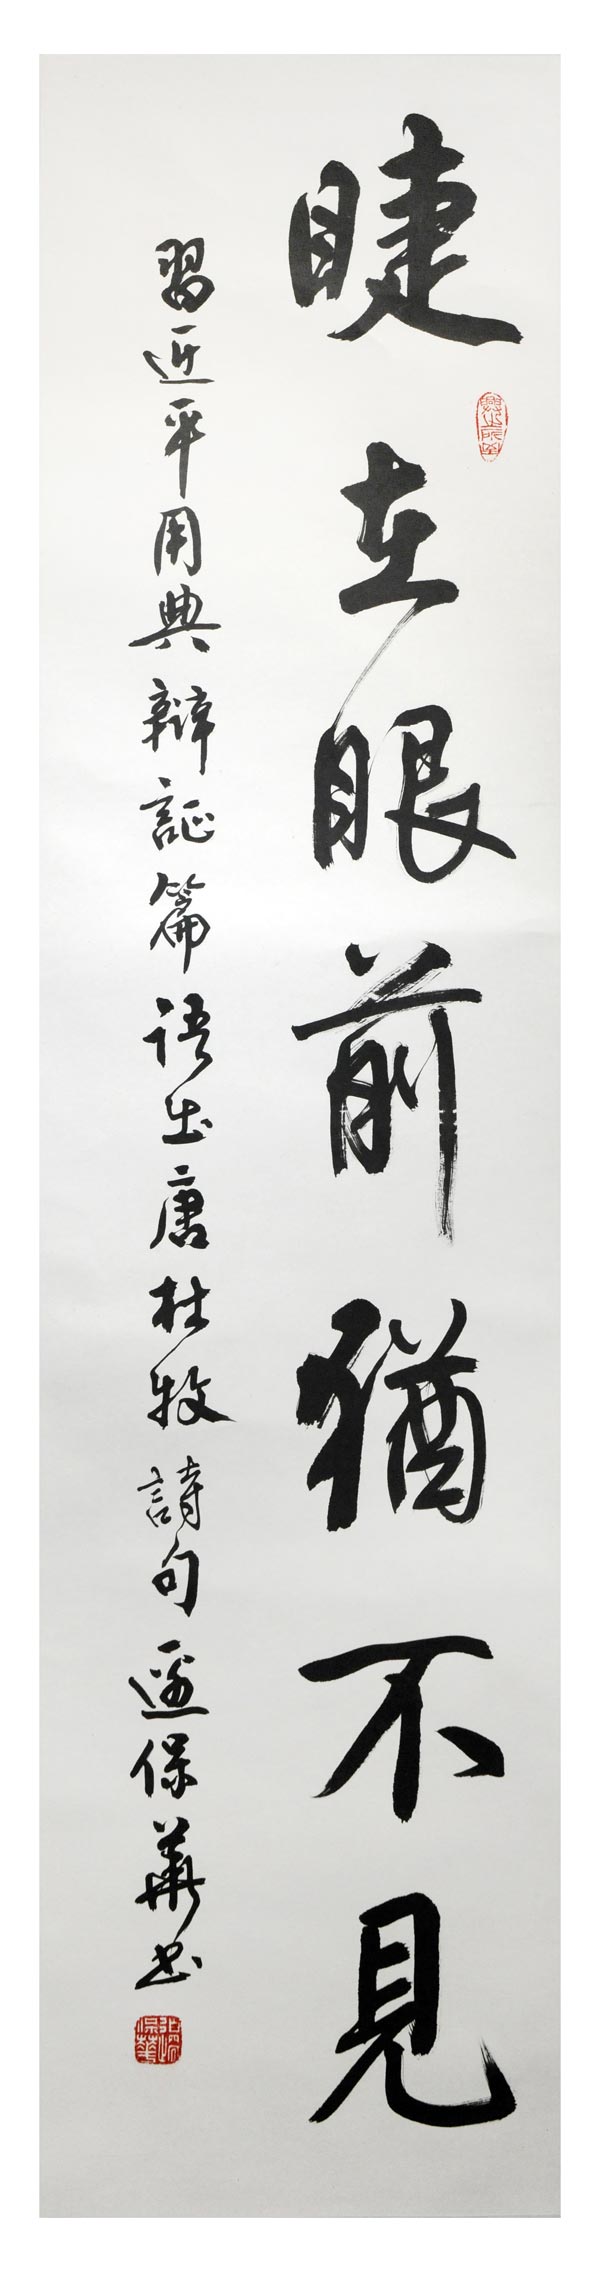 睫在眼前猶不見
興之所至
習近平用典辯証篇語出唐杜牧詩句邊保華書